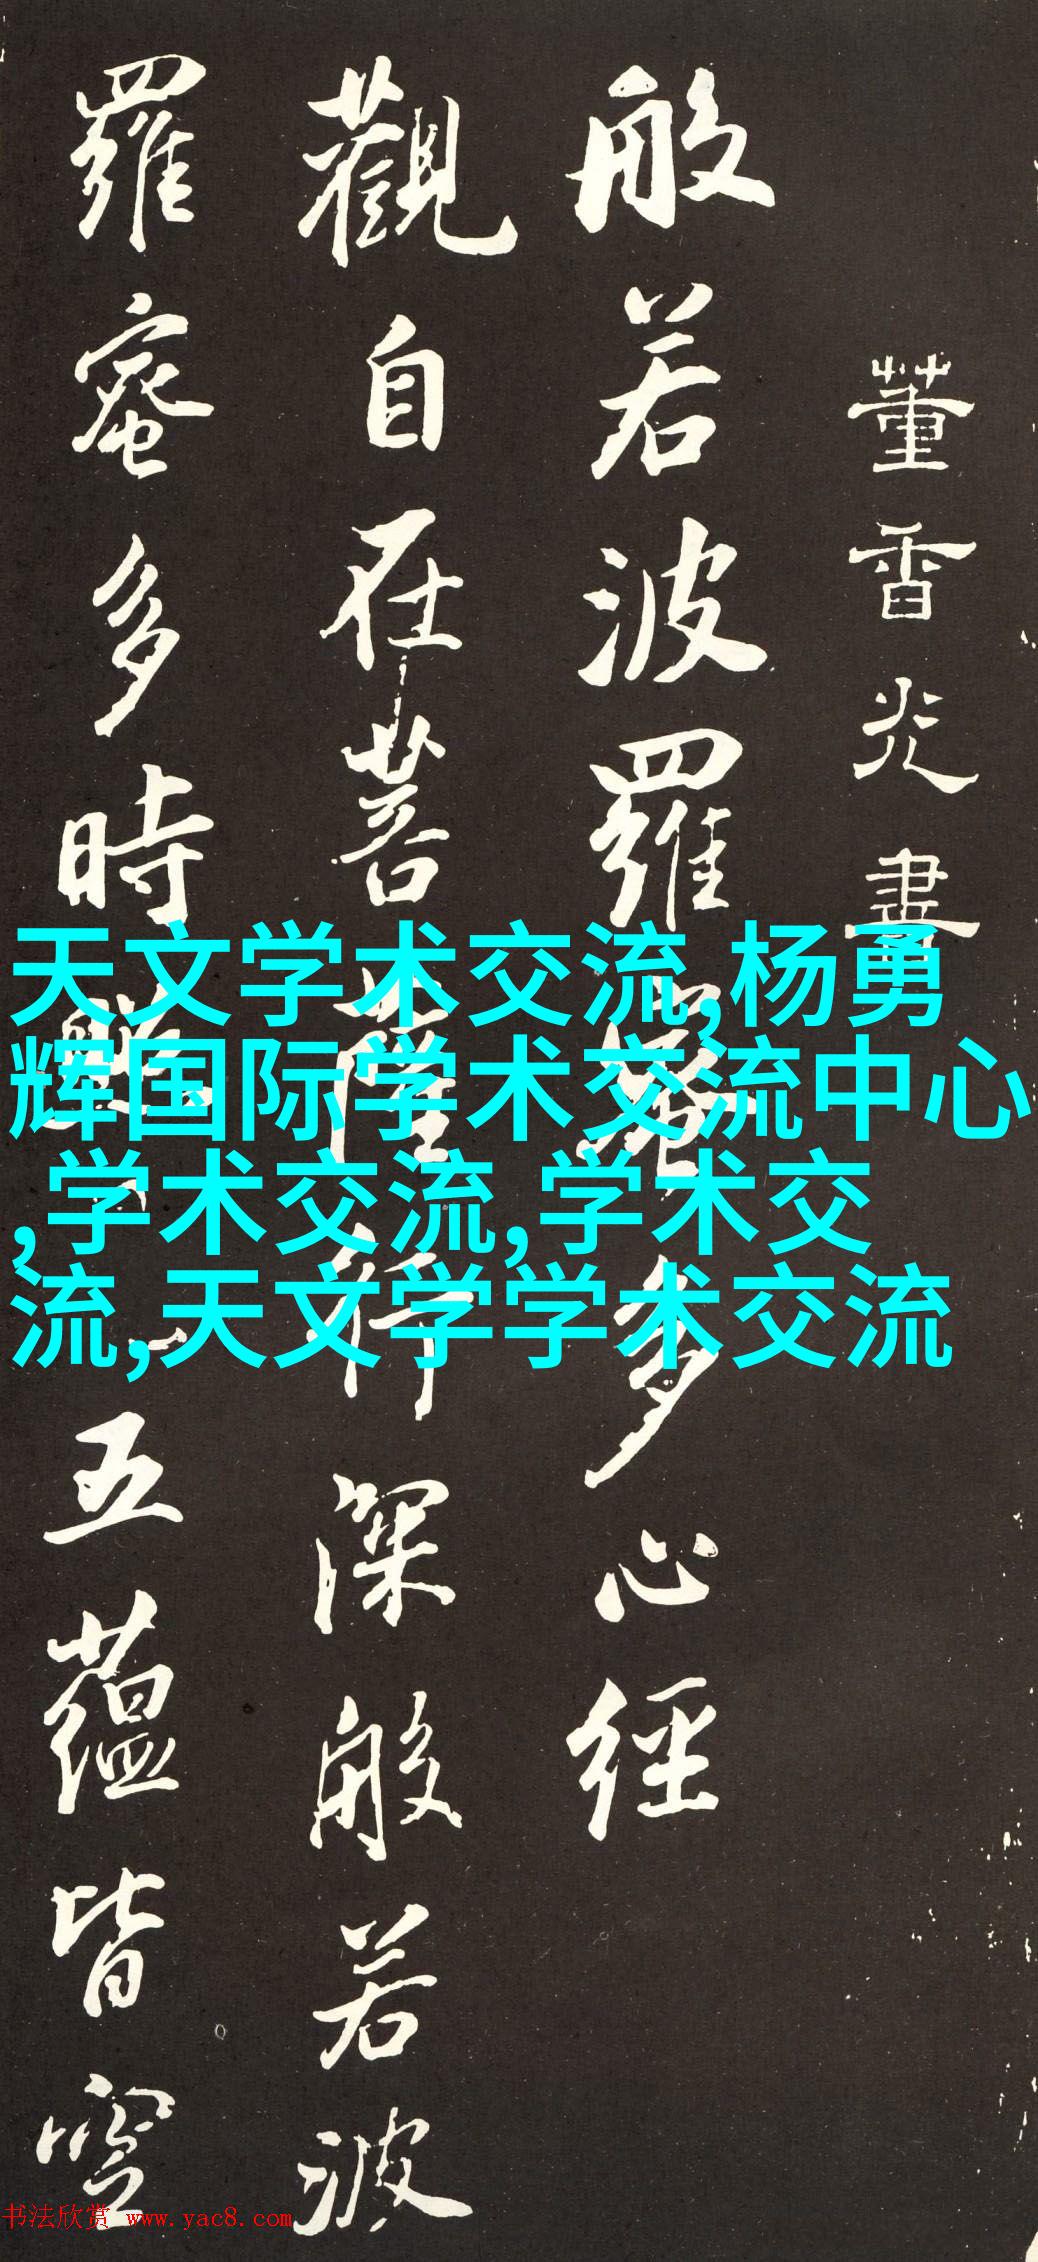 董香光
般若波羅蜜多心經
觀自在菩薩行深般若波
羅蜜多時五蘊皆空
天文学术交流,杨勇
辉国际学术交流中心
,学术交流,学术交
流,天文学学术交流
书法欣赏 www.yac8.com